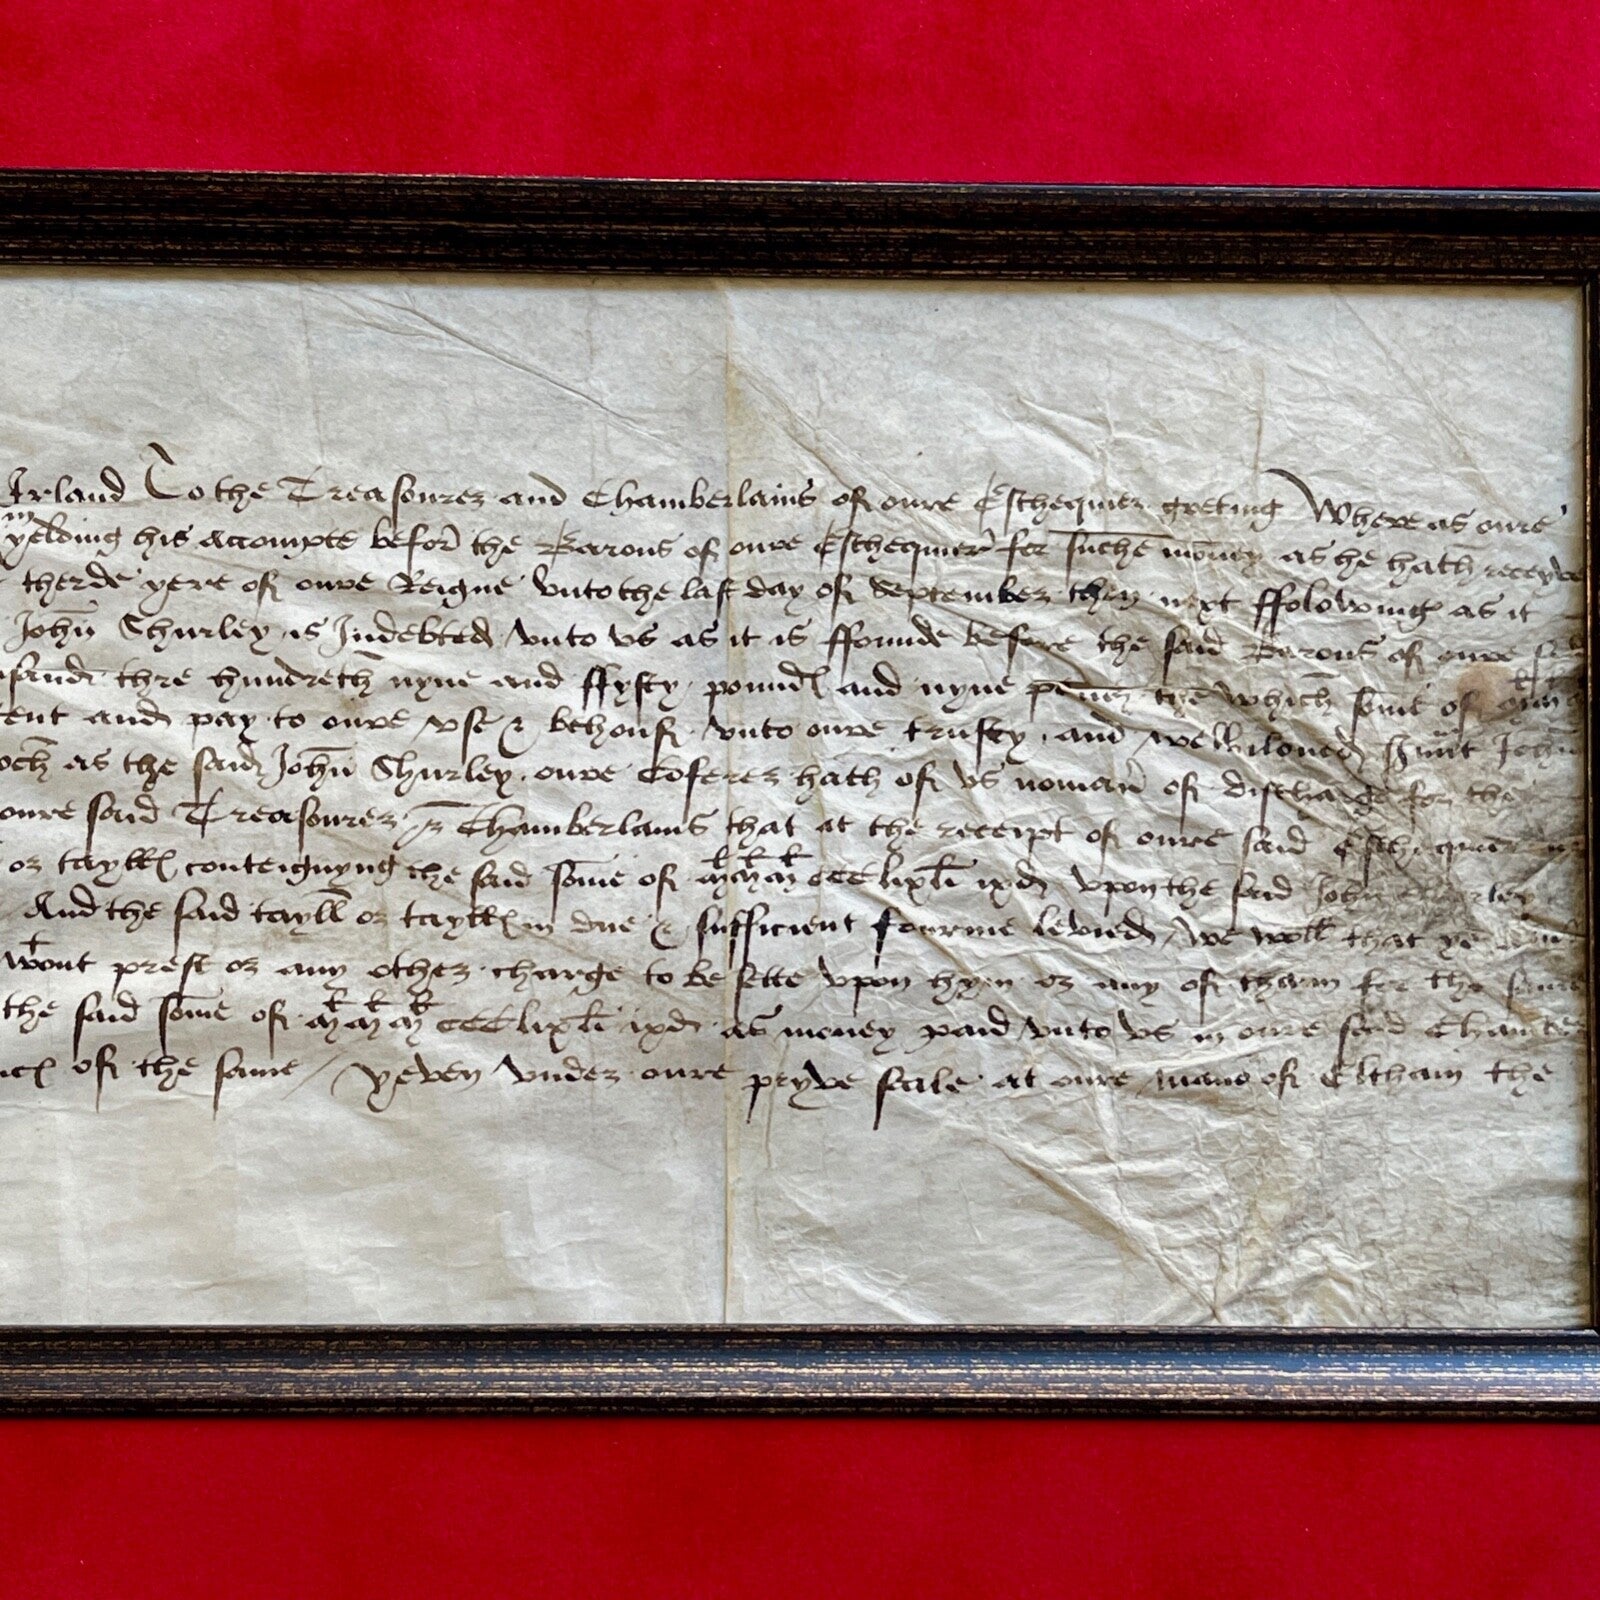 Irland To the Treasourer and Chamberlains of oure Eschequier greting Where as oure
yelding his accompte before the Barons of oure Eschequier for suche money as he hath receyve
therde yere of oure Reigne vnto the last day of September then next ffolowing as it
John Shurley is Indebted vnto vs as it is ffounde before the said Barons of oure said
sand thre hundreth nyne and ffyfty pound and nyne penez the which some of
ent and pay to oure vse & behouf vnto oure trusty and welbiloued John
och as the said John Shurley oure Coferer hath of vs noman of discharge for the
oure said Treasourer & Chamberlains that at the receipt of oure said Eschequier
or taylles conteignyng the said some of MMM CCClixli ixd vpon the said John Shurley
And the said tayll or taylles in due & sufficient fourme levied we woll that ye
wont prest or any other charge to be sette vpon hym or any of tham for the same
the said some of MMM CCClixli ixd as money paid vnto vs in oure said Chambre
of the same / Yeven vnder oure pryve seale at oure manor of Eltham the